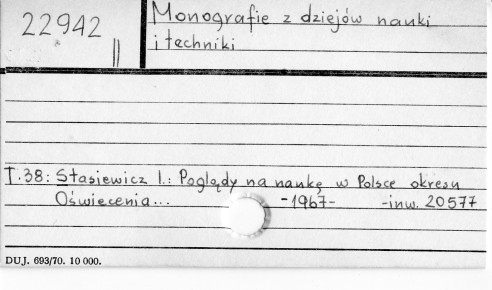 22942
II
Monografie z dziejów nauki
i techniki
T.38: Stasiewicz I.: Poglądy na naukę w Polsce okresu
Oświecenia... -1967- -inw. 20577
DUJ. 693/70. 10 000.